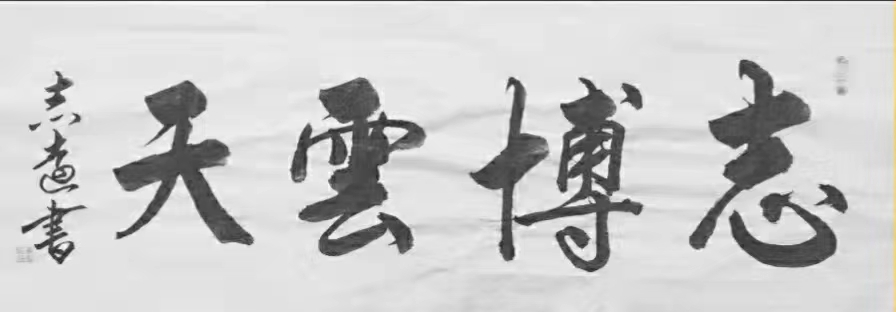 志博雲天
志遠書